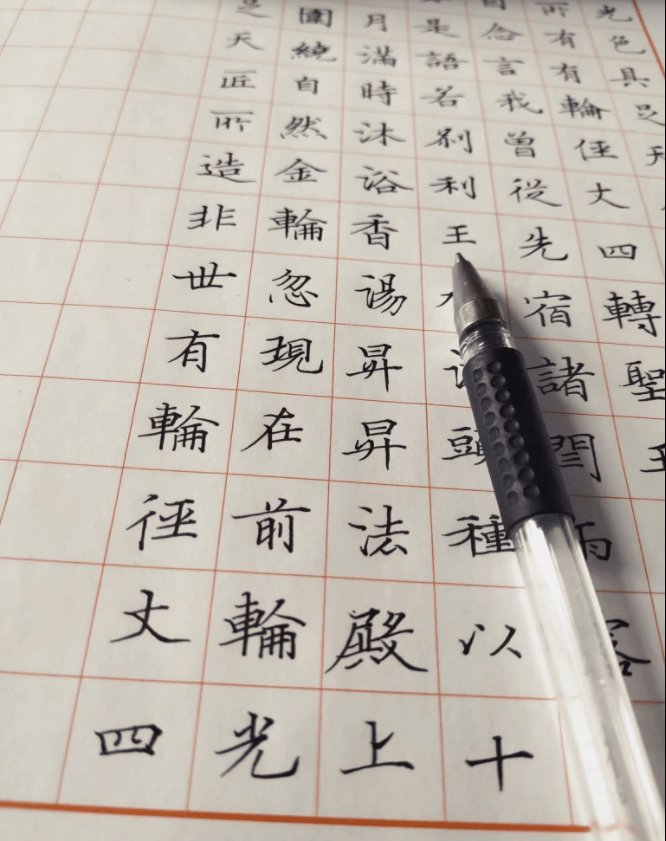 光色具足天
所有有輪徑大四轉聖王
自念言我曾從先宿諸雨
是語若刹利王頭種以十
月滿時沐浴香湯昇昇法殿上
圍繞自然金輪忽現在前輪光
足天匠所造非世有輪徑丈四